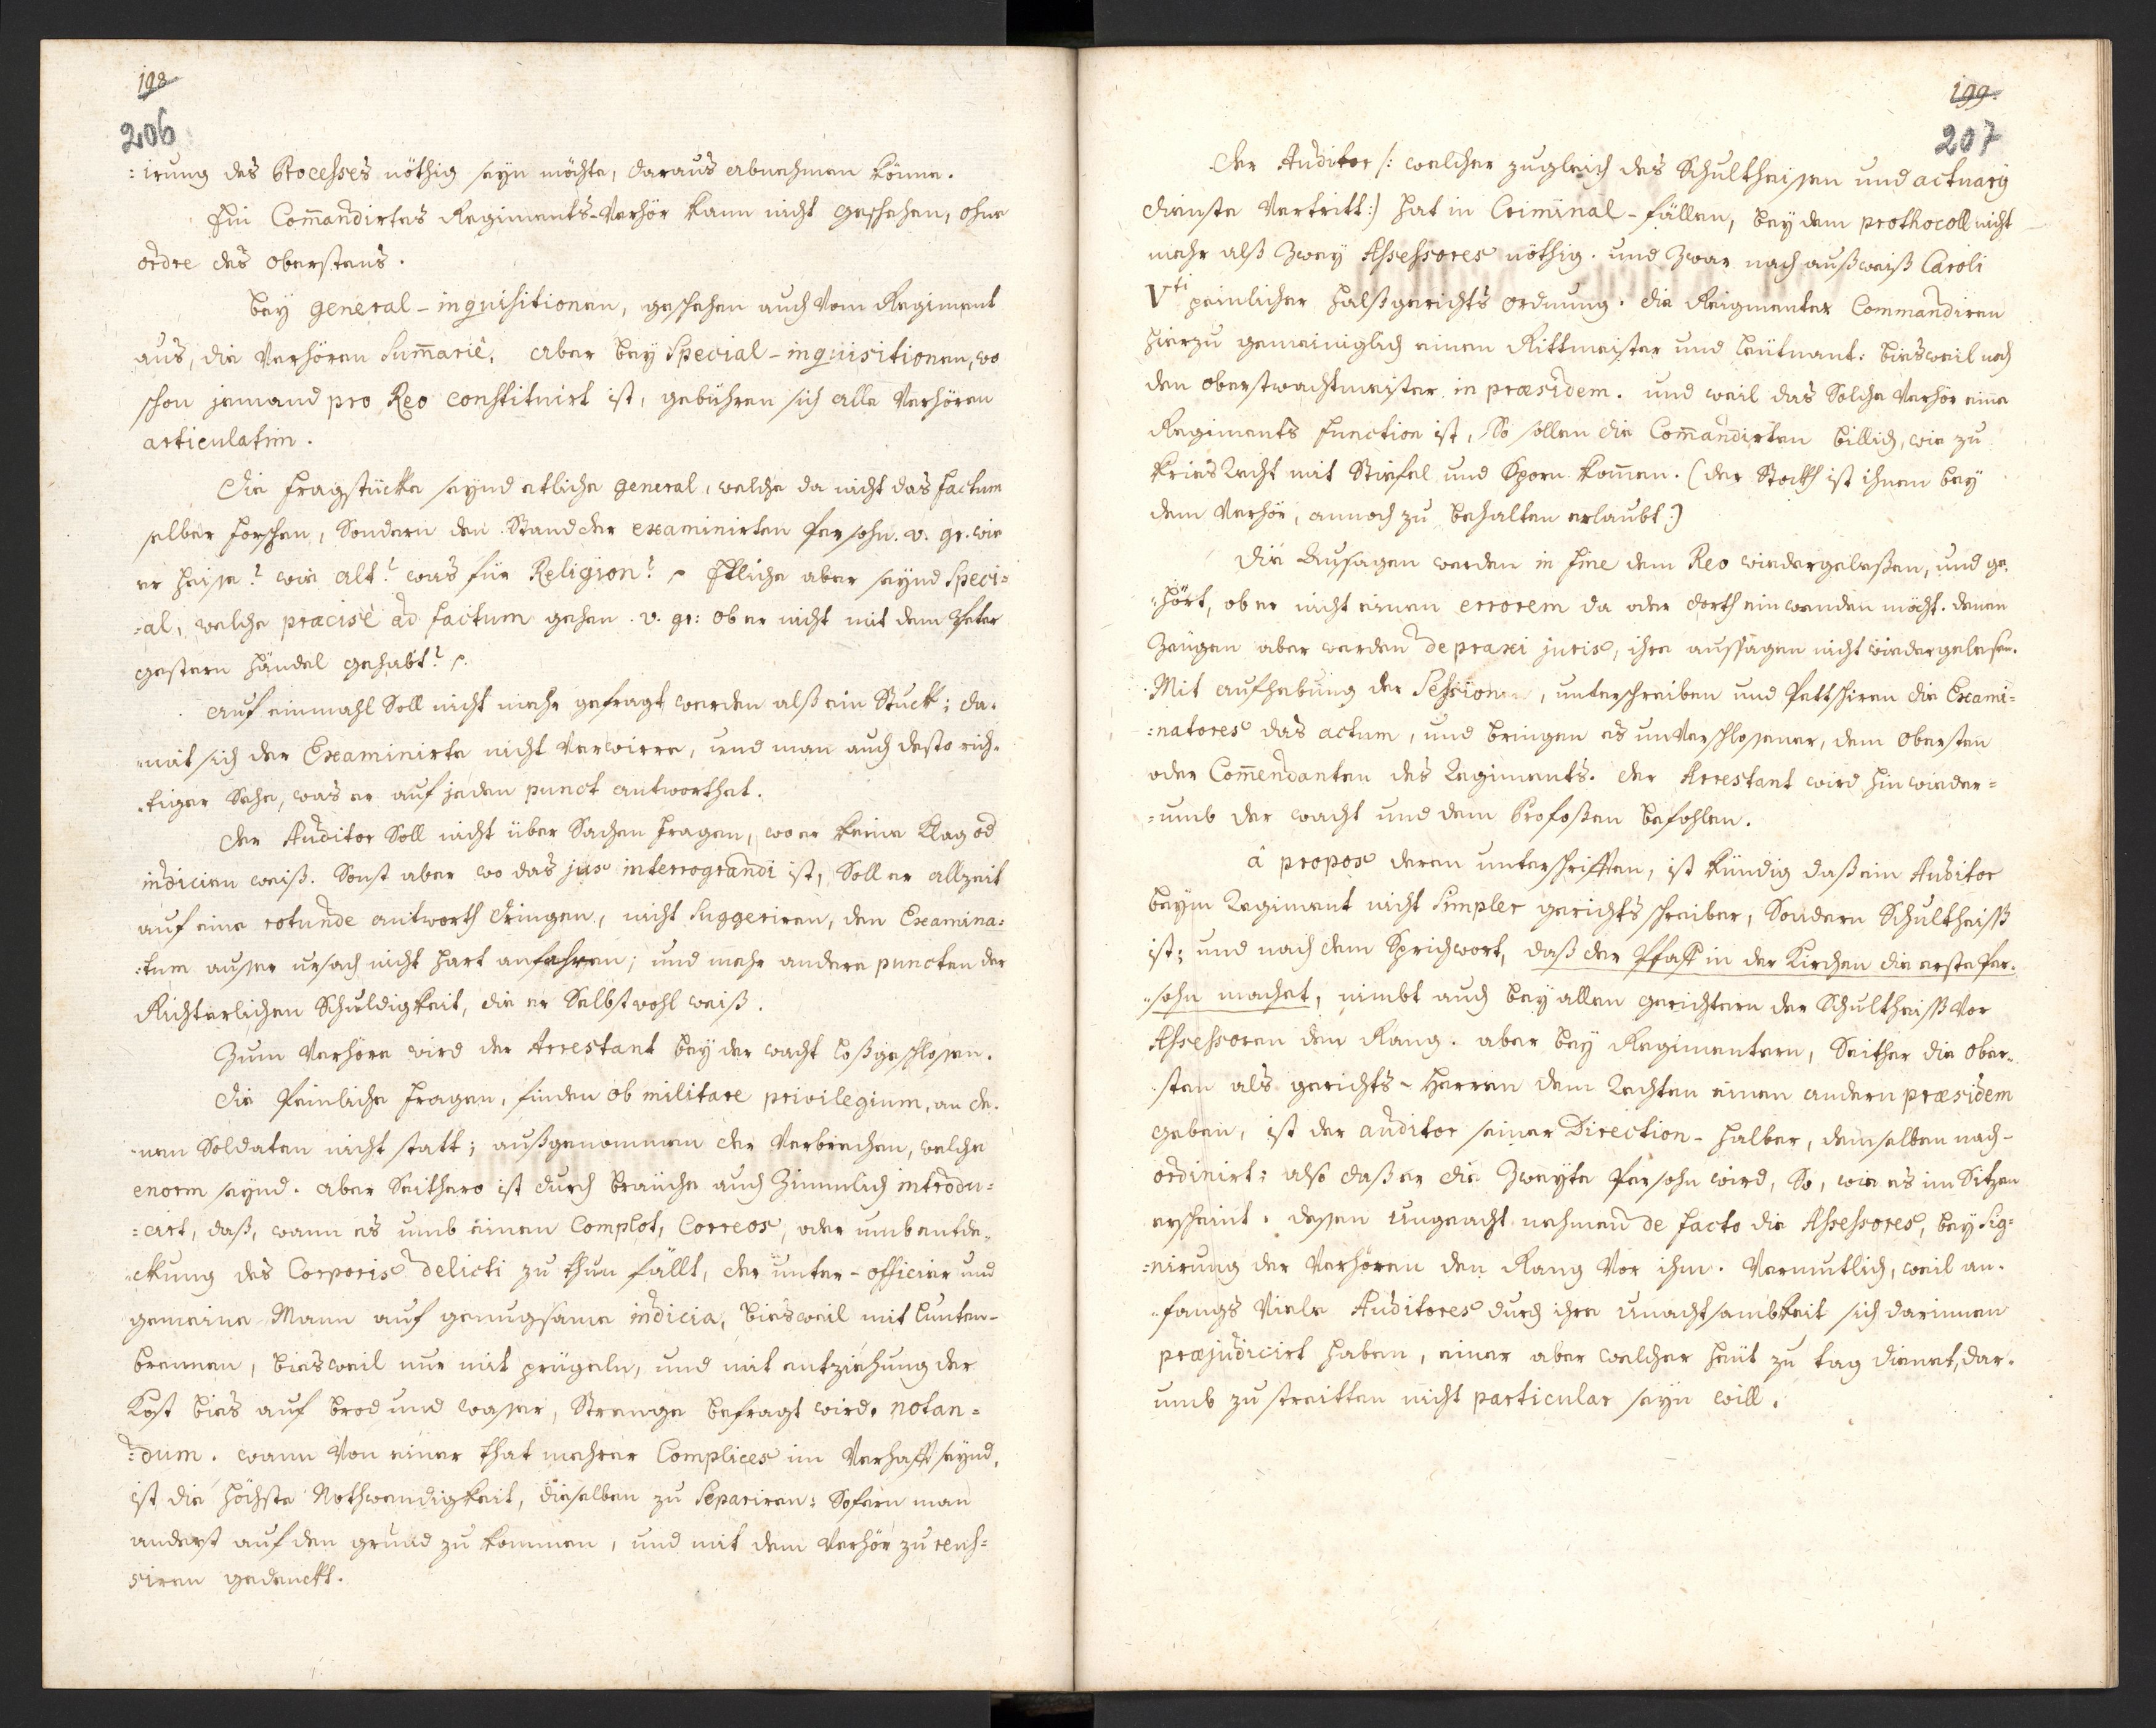 198
206
:irung des Processes nöthig seyn möchte, daraus abnehmen könne.
Ein Com̄andirtes Regiments-Verhör kann nicht geschehen, ohne
ordre des obersten.
bey general-inquisitionen, geschehen auch vom Regiment
aus, die Verhören Sum̄ariè, aber bey Special-inquisitionen, wo
schon jemand pro Reo constituirt ist, gebühren sich alle Verhören
articulatim.
Die Fragstücke seynd etliche general, welche da nicht das factum
selber forschen, Sondern den Stand der examinirten Persohn. v. gr. wie
er heisse? wie alt? was für Religion? Etliche aber seynd Speci=
=al, welche præcisè ad factum gehen. v. gr: ob er nicht mit dem Peter
gestern händel gehabt?
auf einmahl Soll nicht mehr gefragt werden alß ein Stuck; da=
mit sich der Examinirte nicht verwirre, und man auch desto rich=
tiger Sehe, was er auf jeden punct antworthet.
Der Auditor Soll nicht über Sachen fragen, wo er keine Klag od
indicien weiß. Sonst aber wo das jus interrogandi ist, Soll er allzeit
auf eine rotunde antworth dringen, nicht Suggeriren, den Examina=
:tum ausser ursach nicht hart anfahren; und mehr andere puncten der
Richterlichen Schuldigkeit, die er Selbst wohl weiß.
Zum Verhöre wird der Arrestant bey der wacht loßgeschlossen.
Die Peinliche fragen, finden ob militare privilegium, an de=
nen Soldaten nicht statt; außgenommen der Verbrechen, welche
enorm seynd. aber Seithero ist durch bräuche auch Zimmlich introdu=
=cirt, daß, wann es umb einen Complot, Correos, oder umb entde=
ckung des Corporis delicti zu thun fällt, der unter-officier und
gemeine Mann auf genugsame indicia, bisweil mit lunten-
brennen, bisweil nur mit prügeln, und mit entziehung der
Kost bies auf brod und wasser, Strenge befragt wird. notan=
=dum. wann von einer that mehrer Complices im Verhafft seynd,
ist die höchste Nothwendigkeit, dieselben zu Separiren: Sofern man
anderst auf den grund zu kommen, und mit dem Verhör zu reus=
siren gedenckt.
199.
207
Der Auditor /: welcher zugleich des Schultheissen und actuarij
dienste vertritt:) hat in Criminal-fällen, bey dem prothocoll nicht
mehr alß Zwey Assessores nöthig. und Zwar nach außweiß Caroli
Vti peinlicher halßgerichts ordnung. die Regimenter Commandiren
hierzu gemeiniglich einen Rittmeister und leütnant: bisweil noch
den oberstwachtmeister in præsidem. und weil das Solche Verhör eine
Regiments function ist, So sollen die Com̄andirten billich, wie zu
kriesRecht mit Stiefel und Sporn kom̄en. (der Stockh ist ihnen bey
dem Verhör, annoch zu behalten erlaubt:)
Die Aussagen werden in fine dem Reo wiedergelesßen, und ge=
hört, ob er nicht einen errorem da oder dorth einwenden möcht. denen
Zeügen aber werden de praxi juris, ihre aussagen nicht wiedergelesen.
Mit aufhebung der Session, unterschreiben und Pettschiren die Exami=
:natores das actum, und bringen es unverschlossener, dem obersten
oder Com̄endanten des Regiments. der Arrestant wird hinwieder=
=umb der wacht und dem Profosßen befohlen.
â propos deren unterschrifften, ist kündig daß ein Auditor
beym Regiment nicht Simpler gerichtsschreiber, Sondern Schultheiß
ist; und nach dem Sprichwort, daß der Pfaff in der Kirchen die erste Per=
sohn machet, nimbt auch bey allen gerichtern der Schultheiß vor
Assessoren den Rang. aber bey Regimentern, Seither die ober=
sten als gerichts-Herren dem Rechten einen andern præsidem
geben, ist der auditor seiner Direction-halber, demselben nach-
ordinirt: also daß er die Zweyte Persohn wird, So, wie es im Sitzen
erscheint. dessen ungeacht nehmen de facto die Assessores, bey Sig=
:nirung der Verhören den Rang vor ihm. Vermutlich, weil an=
fangs viele Auditores durch ihre unachtsambkeit sich darinnen
præjudicirt haben, einer aber welcher heüt zu tag dienet, dar=
umb zu streitten nicht particular seyn will.